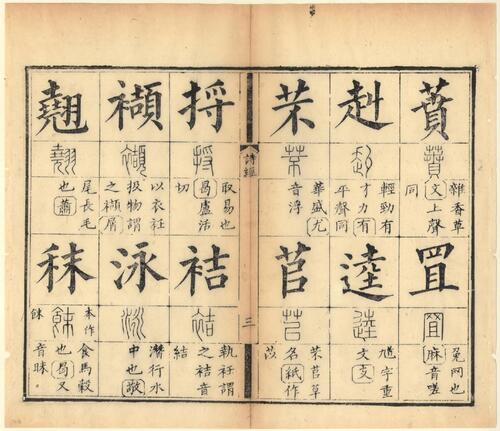 蕡
蕡
雜香草
文上聲
同
罝
罝
兔网也
麻音嗟
赳
赳
輕勁有
才力有
平聲同
逵
逵
馗字重
文支
芣
芣
華盛尤
音浮
苢
苢
芣苢草
名紙作
苡
詩經
三
捋
捋
取易也
曷盧活
切
袺
袺
執衽謂
之袺音
結
襭
襭
以衣衽
扱物謂
之襭屑
泳
泳
潛行水
中也敬
翹
翹
尾長毛
也蕭
秣
本作
食馬穀
也曷又
音昧